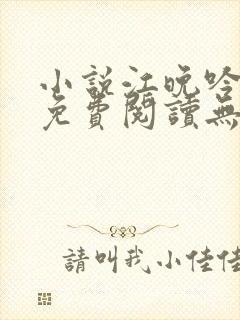 小説江晚吟
免費閱讀無
請叫我小佳佳